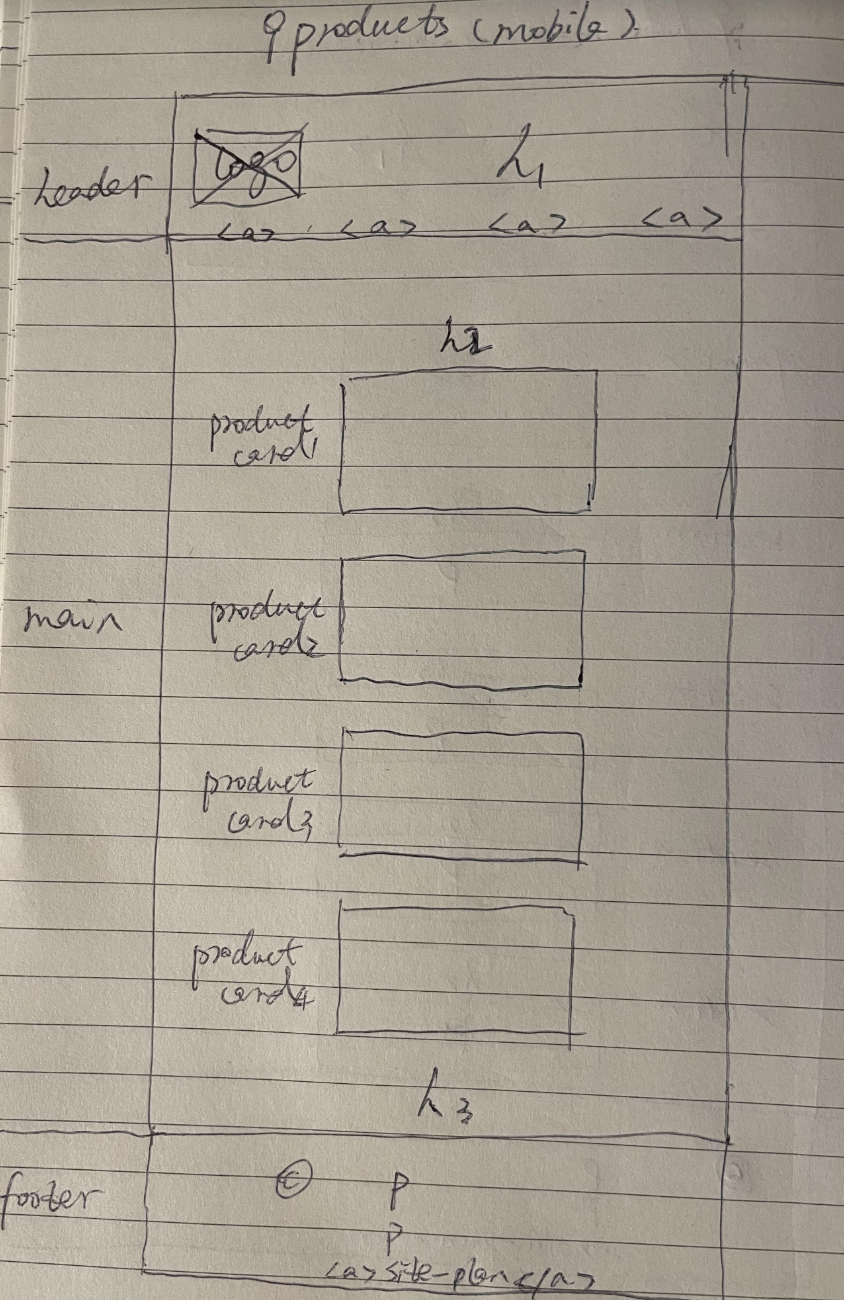 9 products (mobile).
header
logo
h1
<a> <a> <a> <a>
h2
product
card1
main
product
card2
product
card3
product
card4
h3
footer
© p
p
<a>site-plan</a>